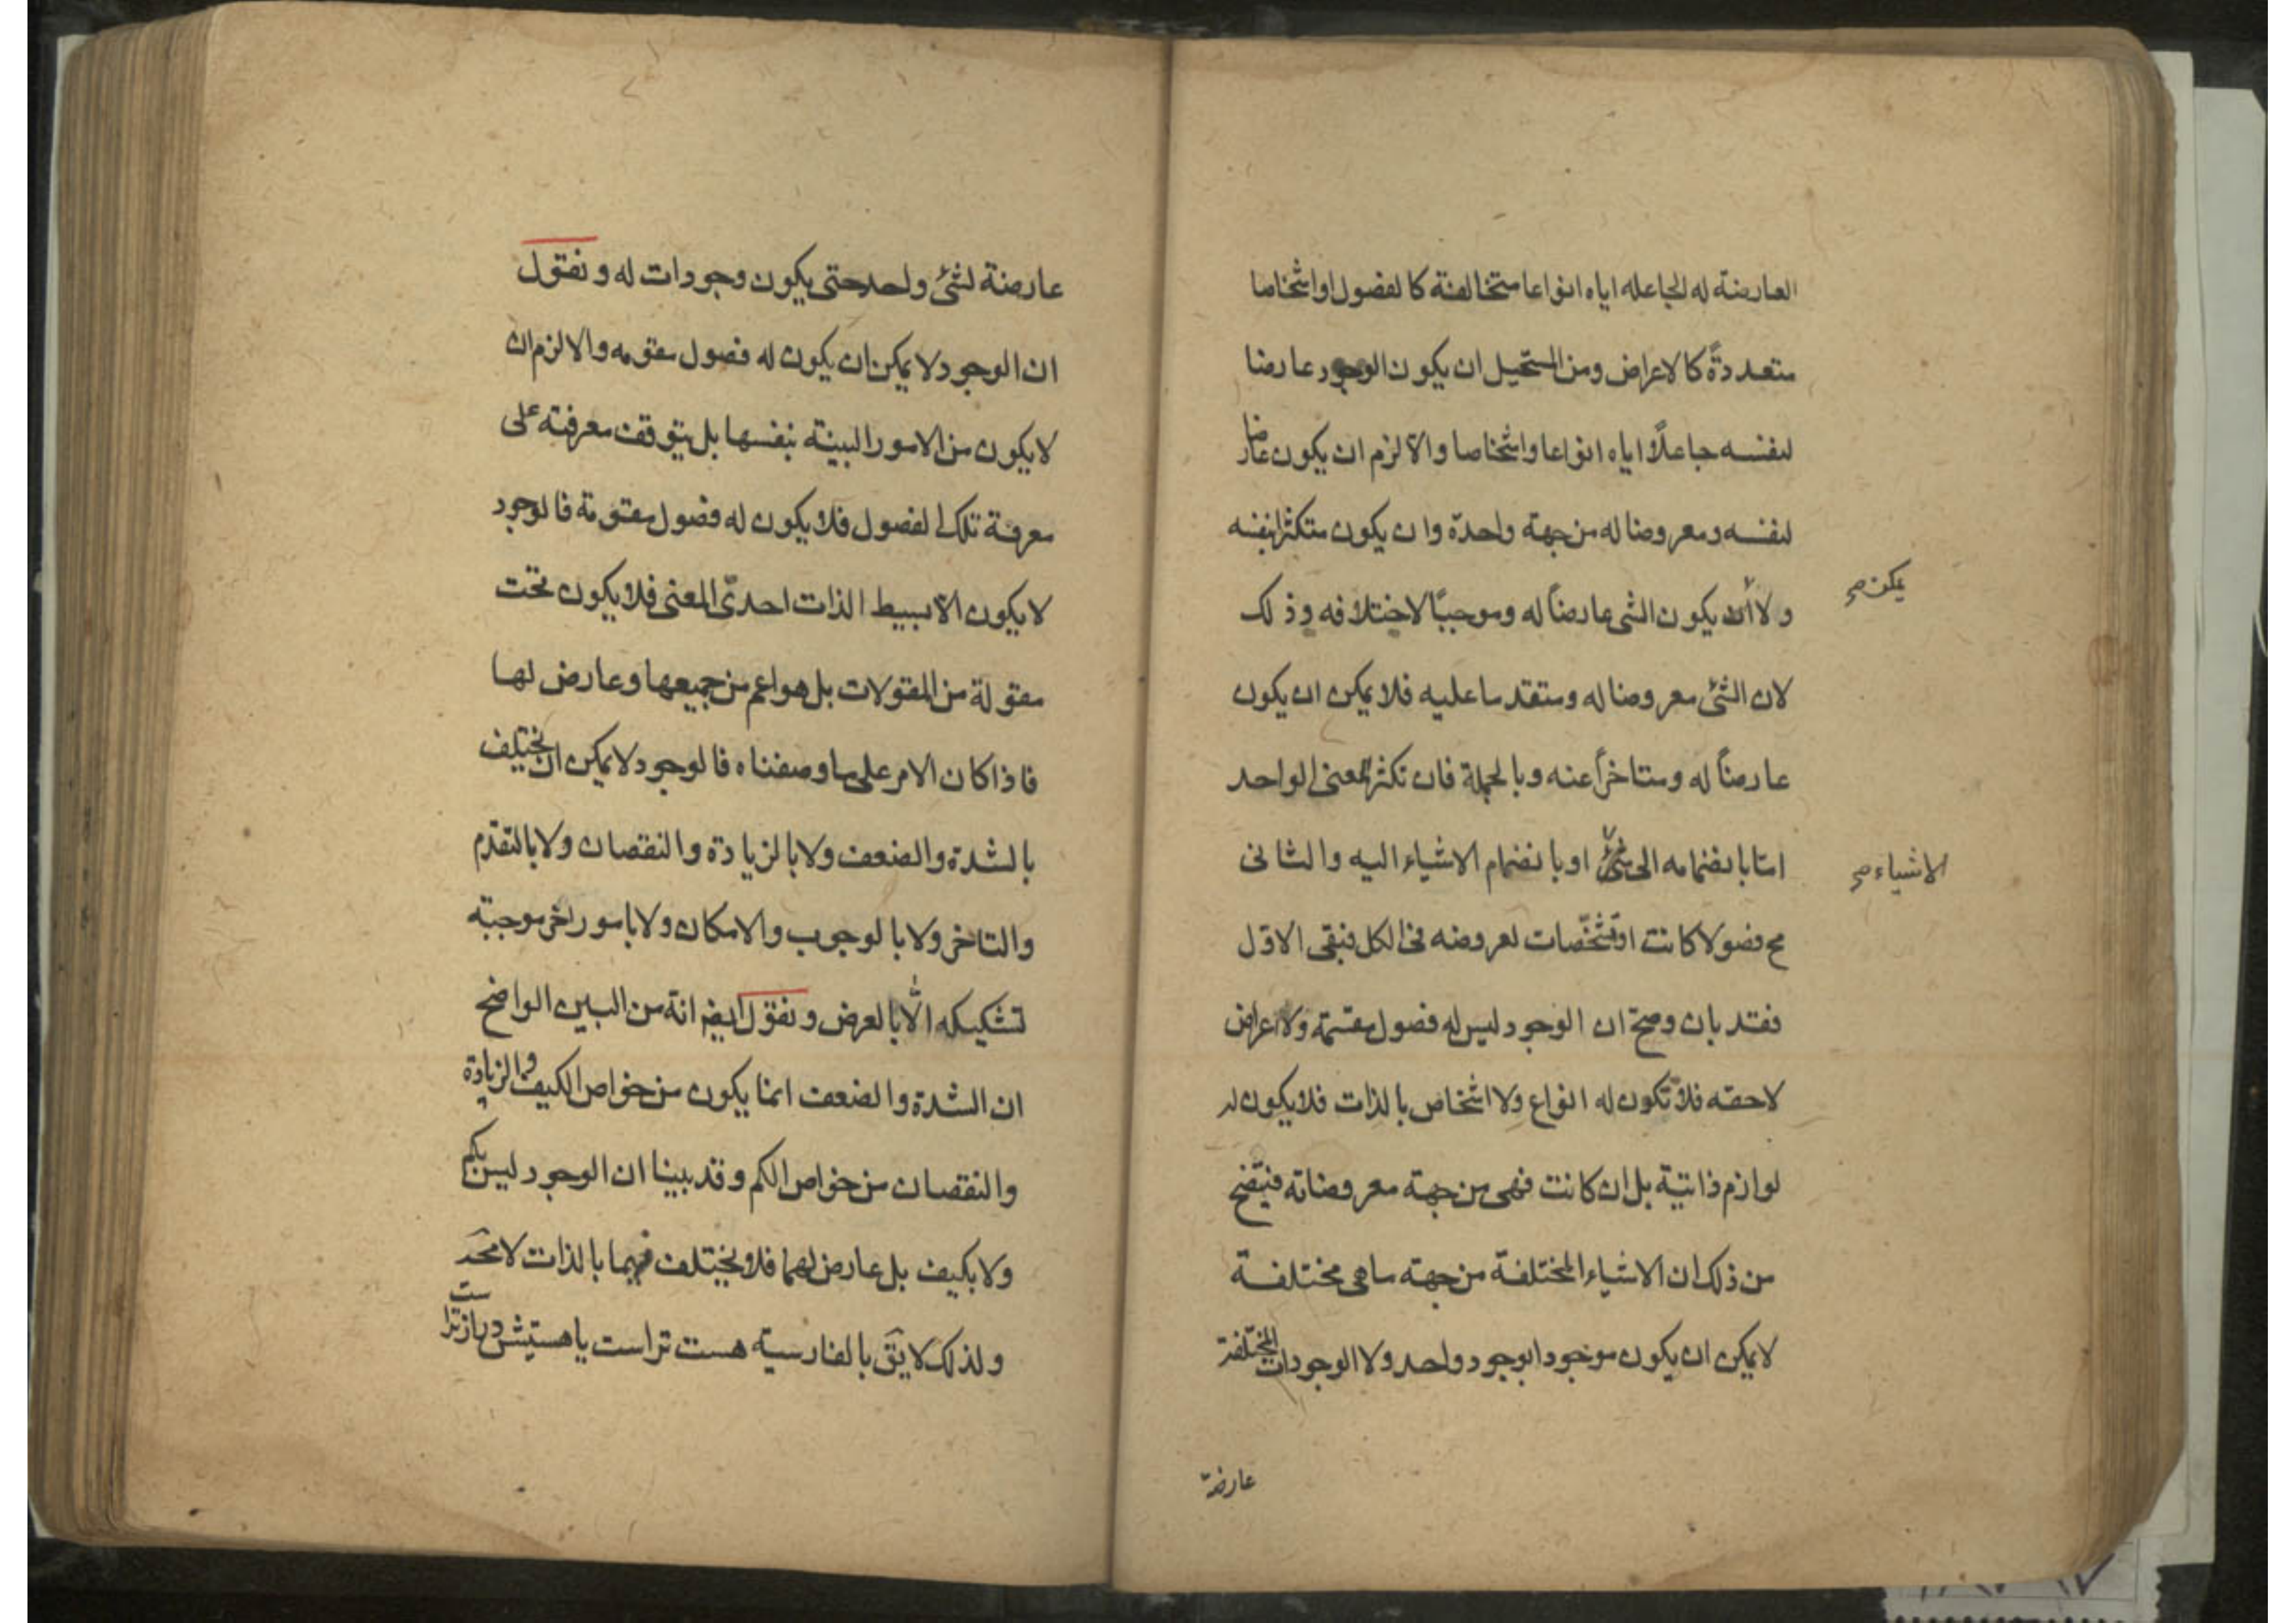 العارضة له الجاعله اياه انواعا متخالفة كالفصول او اشخاصا
متعددةً كالاعراض ومن المستحيل ان يكون الوجود عارضا
لنفسه جاعلاً اياه انواعا واشخاصا والا لزم ان يكون عارضا
لنفسه ومعروضا له من جهة واحدة وان يكون متكثرا بنفسه
ولا ان يكون الشى عارضاً له وموجبًا لاختلافه وذلك
يمكن صح
لان الشئ معروضا له ومتقدما عليه فلا يمكن ان يكون
عارضاً له ومتاخراً عنه وبالجملة فان تكثر المعنى الواحد
امّا بانضمامه الى شئ او بانضمام الاشياء اليه والثانى
الاشياء صح
مح فصولا كانت او مشخّصات لعروضه فى الكل فبقى الاوّل
فقد بان وصحّ ان الوجود ليس له فصول مقسّمة ولا اعراض
لاحقه فلا تكون له انواع ولا اشخاص بالذات فلا يكون له
لوازم ذاتيّة بل ان كانت فهى من جهة معروضاته فيتضح
من ذلك ان الاشياء المختلفة من جهة ما هى مختلفة
لا يمكن ان يكون موجودا بوجود واحد ولا الوجودات المختلفة
عارضة
عارضة لشئ واحد حتى يكون وجودات له ونقول
ان الوجود لا يمكن ان يكون له فصول مقومه والا لزم ان
لا يكون من الامور البينة بنفسها بل يتوقف معرفته على
معرفة تلك الفصول فلا يكون له فصول مقومة فالوجود
لا يكون الا بسيط الذات احدىّ المعنى فلا يكون تحت
مقولة من المقولات بل هو اعم من جميعها وعارض لها
فاذا كان الامر على ما وصفناه فالوجود لا يمكن ان يختلف
بالشدة والضعف ولا بالزيادة والنقصان ولا بالتقدّم
والتاخر ولا بالوجوب والامكان ولا بامور اخر موجبة
لتشكيكه الّا بالعرض ونقول ايضا انه من البين الواضح
ان الشدة والضعف انما يكون من خواص الكيف والزيادة
والنقصان من خواص الكم وقد بينا ان الوجود ليس بكم
ولا بكيف بل عارض لهما فلا يختلف فيهما بالذات لا محة
ولذلك لا يق بالفارسية هست تراست يا هستيش درازتر است